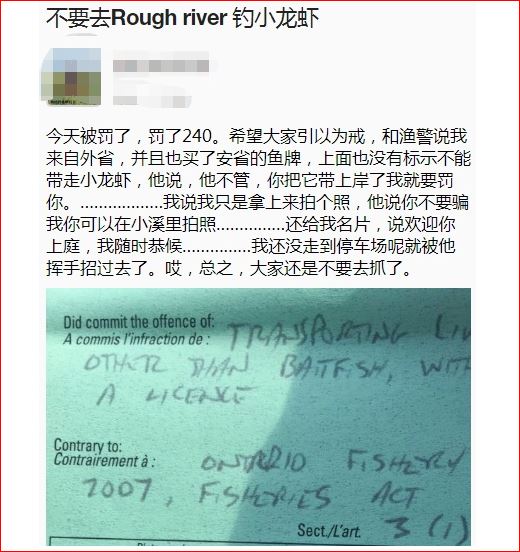 不要去Rough river 钓小龙虾
今天被罚了，罚了240。希望大家引以为戒，和渔警说我
来自外省，并且也买了安省的鱼牌，上面也没有标示不能
带走小龙虾，他说，他不管，你把它带上岸了我就要罚
你。..................我说我只是拿上来拍个照，他说你不要骗
我你可以在小溪里拍照...............还给我名片，说欢迎你
上庭，我随时恭候...............我还没走到停车场呢就被他
挥手招过去了。哎，总之，大家还是不要去抓了。
Did commit the offence of: TRANSPORTING LIV
A commis l'infraction de :
OTHER THAN BAITFISH, WITH
A LICENCE
Contrary to:
Contrairement à : ONTARIO FISHERY
2007, FISHERIES ACT
Sect./L'art. 3 (1)